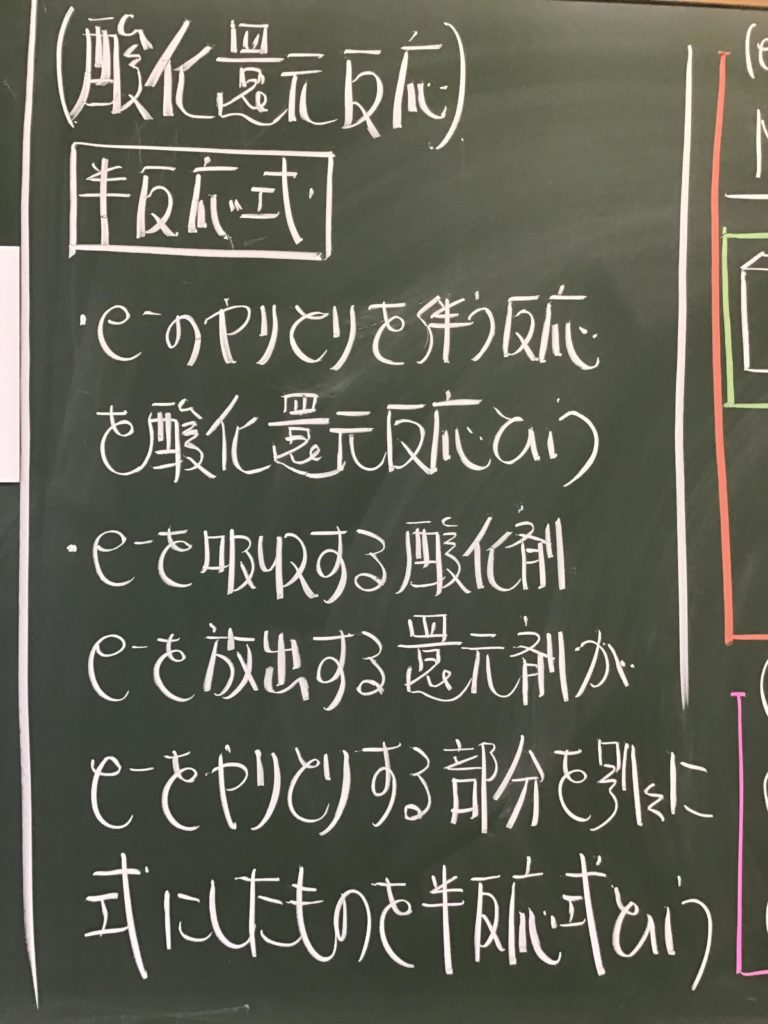 (酸化還元反応)
半反応式
・e⁻のやりとりを伴う反応
を酸化還元反応という
・e⁻を吸収する酸化剤
e⁻を放出する還元剤が
e⁻をやりとりする部分を別々に
式にしたものを半反応式という
(e